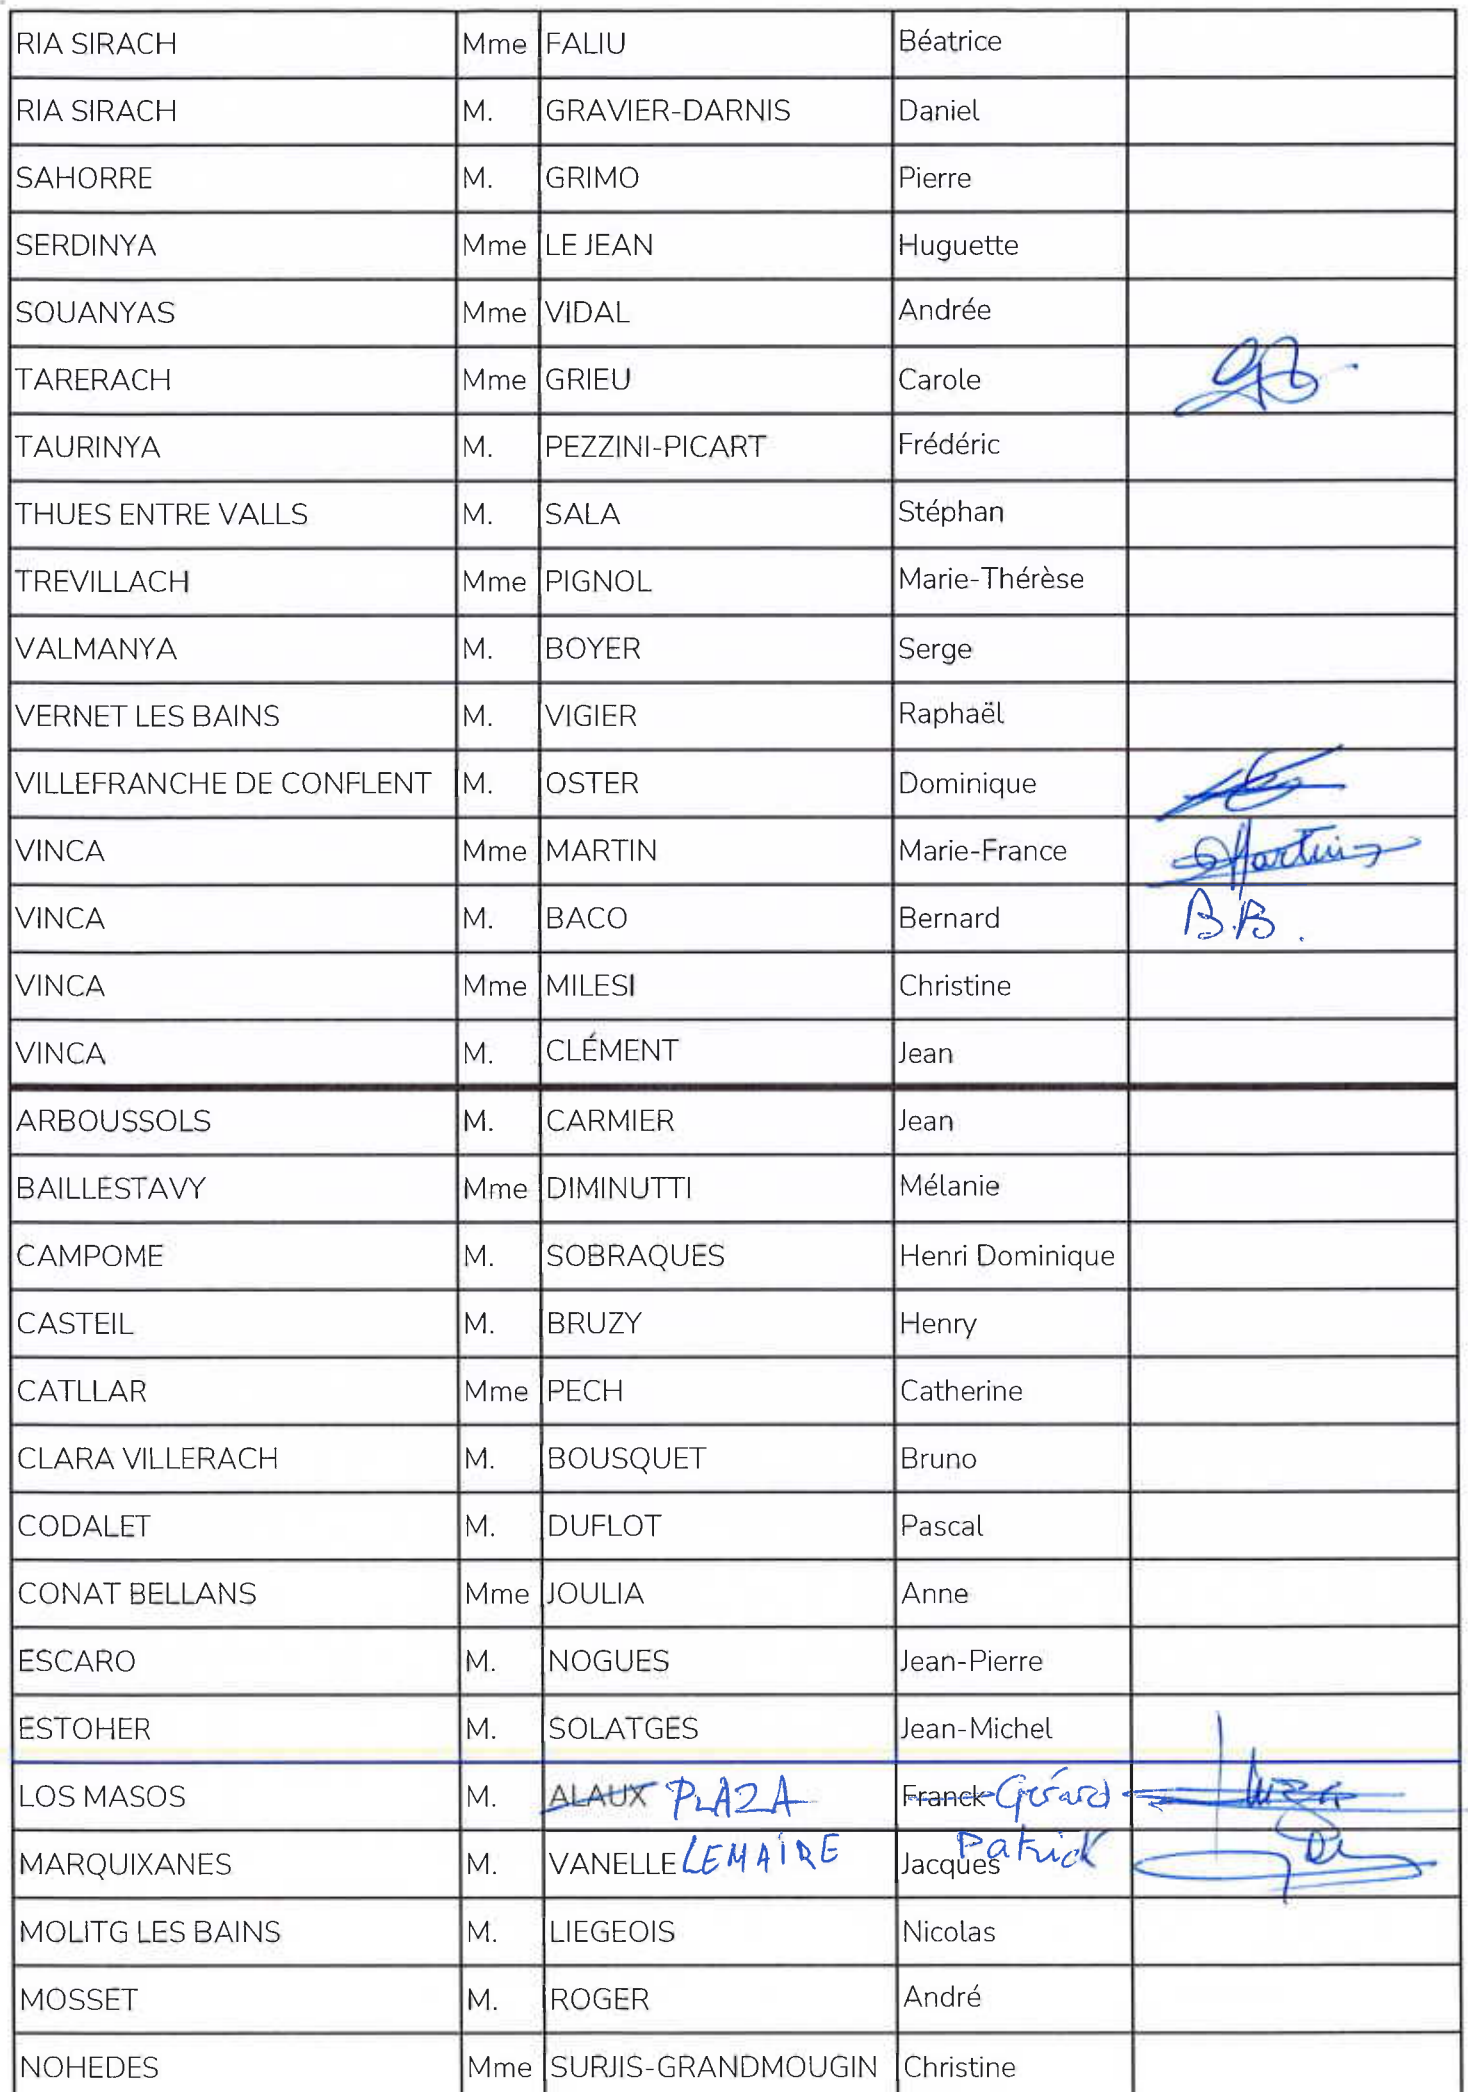 RIA SIRACH Mme FALIU Béatrice
RIA SIRACH M. GRAVIER-DARNIS Daniel
SAHORRE M. GRIMO Pierre
SERDINYA Mme LE JEAN Huguette
SOUANYAS Mme VIDAL Andrée
TARERACH Mme GRIEU Carole
TAURINYA M. PEZZINI-PICART Frédéric
THUES ENTRE VALLS M. SALA Stéphan
TREVILLACH Mme PIGNOL Marie-Thérèse
VALMANYA M. BOYER Serge
VERNET LES BAINS M. VIGIER Raphaël
VILLEFRANCHE DE CONFLENT M. OSTER Dominique
VINCA Mme MARTIN Marie-France Martin
VINCA M. BACO Bernard B.B.
VINCA Mme MILESI Christine
VINCA M. CLÉMENT Jean
ARBOUSSOLS M. CARMIER Jean
BAILLESTAVY Mme DIMINUTTI Mélanie
CAMPOME M. SOBRAQUES Henri Dominique
CASTEIL M. BRUZY Henry
CATLLAR Mme PECH Catherine
CLARA VILLERACH M. BOUSQUET Bruno
CODALET M. DUFLOT Pascal
CONAT BELLANS Mme JOULIA Anne
ESCARO M. NOGUES Jean-Pierre
ESTOHER M. SOLATGES Jean-Michel
LOS MASOS M. ALAUX PLAZA Franck Gérard
MARQUIXANES M. VANELLE LEMAIRE Jacques Patrick
MOLITG LES BAINS M. LIEGEOIS Nicolas
MOSSET M. ROGER André
NOHEDES Mme SURJIS-GRANDMOUGIN Christine